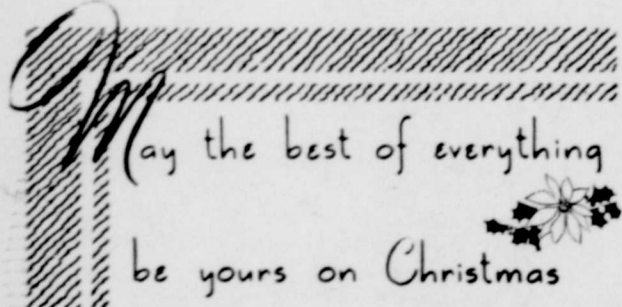 May the best of everything
be yours on Christmas